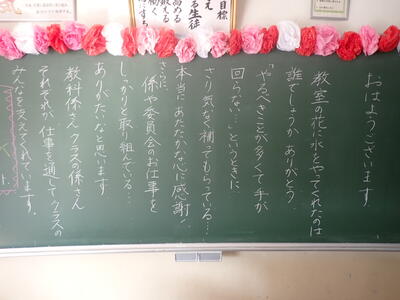 おはようございます
教室の花に水をやってくれたのは
誰でしょうか ありがとう
「やるべきことが多くて手が
回らな…」というときに
さり気なく補ってもらっている…
本当にあたたかな心に感謝♪
さらに、
係や委員会のお仕事を
しっかりと取り組んでいる…
ありがたいなと思います
教科係さん クラスの係さん
それぞれが 仕事を通してクラスの
みんなを支えてくれています。
目標
る生徒
高める
鍛える
働く